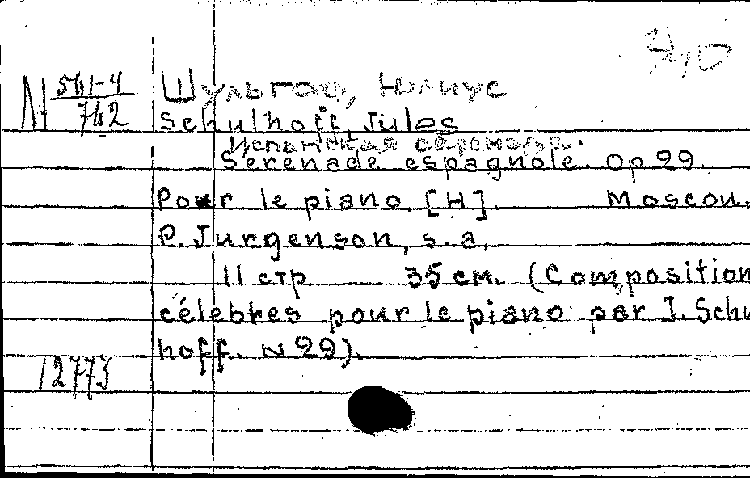 N 561-4
742
Шульгоф, Юлиус
Schulhoff, Jules
Испанская серенада.
Serenade espagnole. Op 29.
Pour le piano. [Н]. Moscou.
P. Jurgenson, s. a.
11 стр 35 см. (Composition
célebres pour le piano par J. Schu
hoff. N 29).
12773